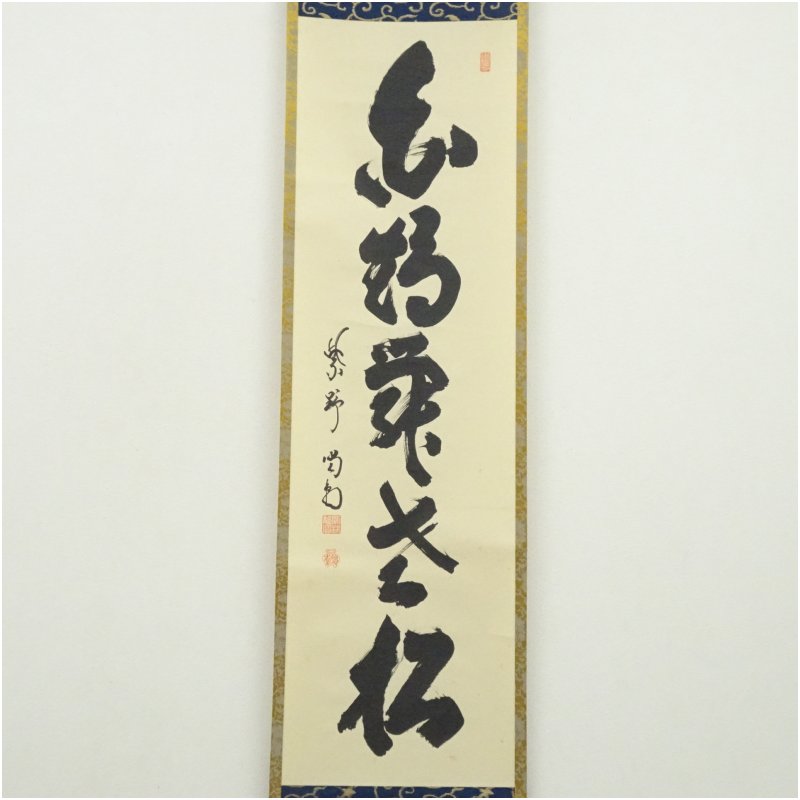 白鶴舞老松
紫野